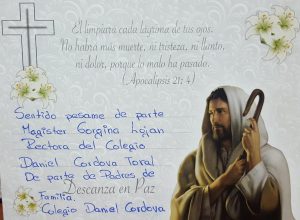 El limpiara cada lagrima de tus ojos.
No habra más muerte, ni tristeza, ni llanto,
ni dolor, porque lo malo ha pasado.
(Apocalipsis 21: 4)
Sentido pesame de parte
Magister Gorgina Lojan
Rectora del Colegio
Daniel Cordova Toral
De parte de Padres de
Familia.
Descanza en Paz
Colegio Daniel Cordova